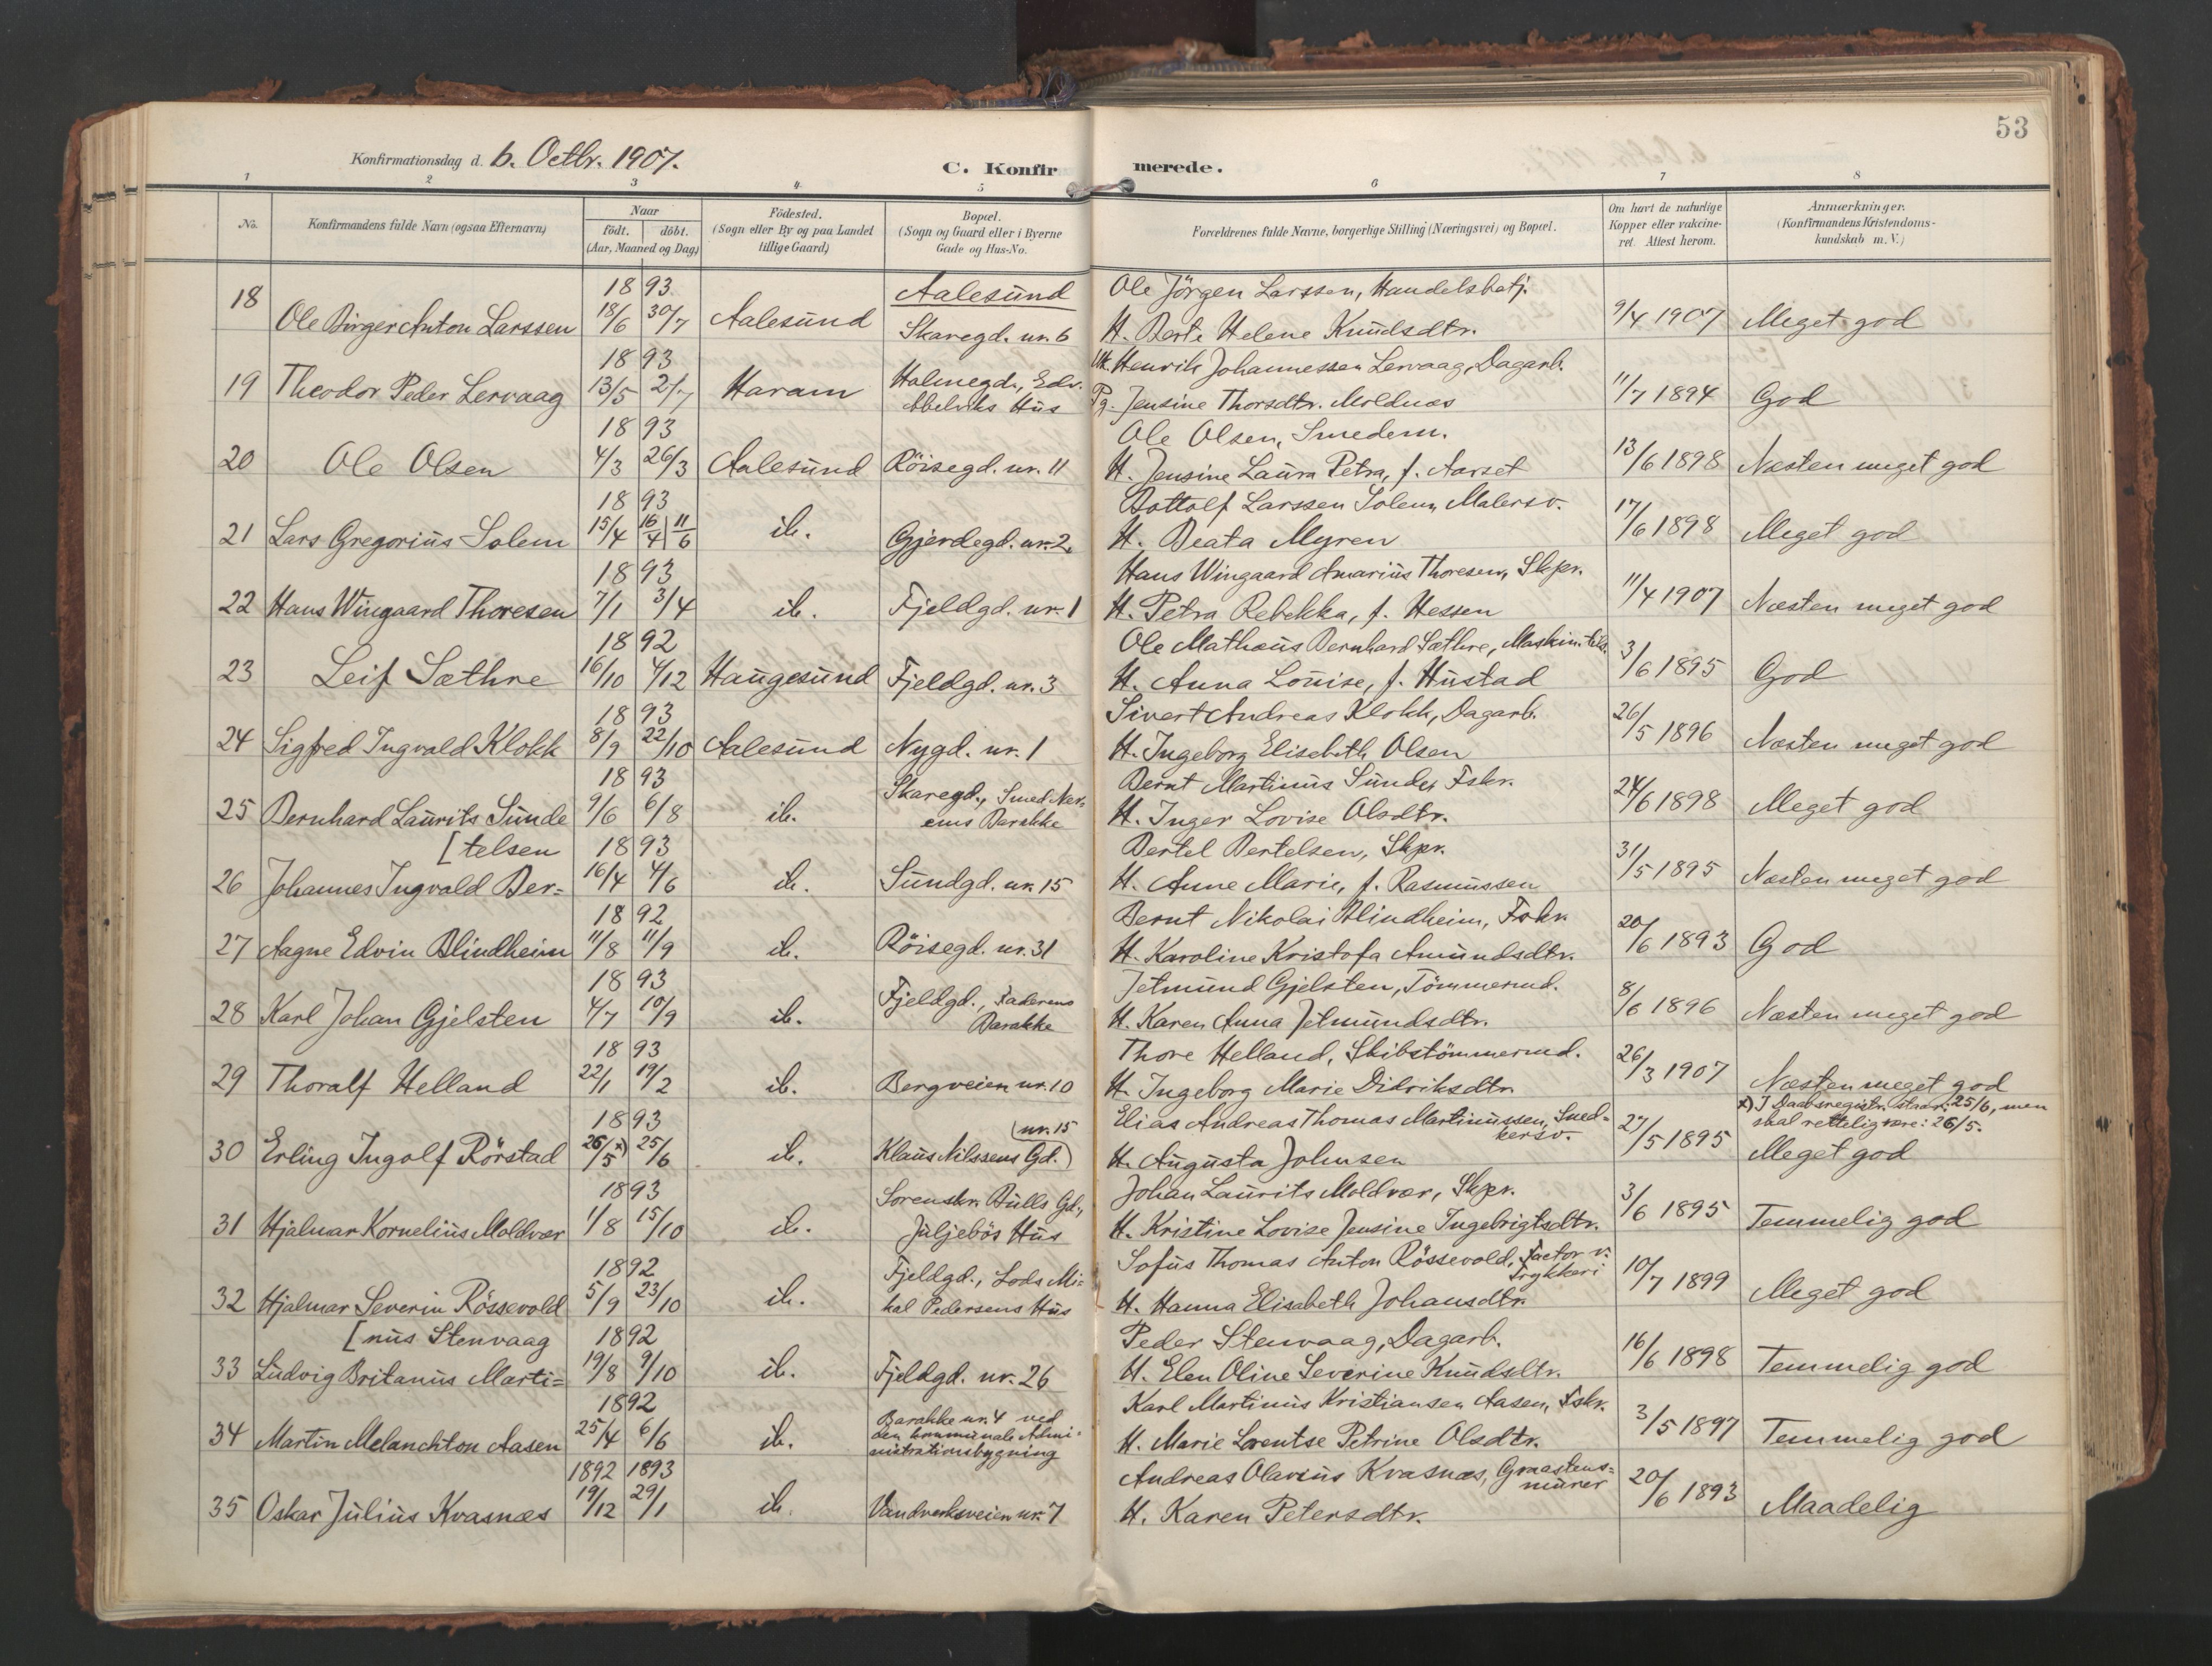 53
Konfirmationsdag d. 6. Octbr. 1907.
C. Konfirmerede.
1 2 3 4 5 6 7 8
No.
Konfirmandens fulde Navn (ogsaa Efternavn)
Naar
født. døbt.
(Aar, Maaned og Dag)
Fødested.
(Sogn eller By og paa Landet
tillige Gaard)
Bopæl.
(Sogn og Gaard eller i Byerne
Gade og Hus-No.
Forældrenes fulde Navne, borgerlige Stilling (Næringsvei) og Bopæl.
Om havt de naturlige
Kopper eller vakcine-
ret. Attest herom.
Anmærkninger.
(Konfirmandens Kristendoms-
kundskab m. V.)
1893 Aalesund Ole Jörgen Larssen, Handelsbetj.
18 Ole Birger Anton Larssen 18/6 30/7 Aalesund Skaregd. nr. 6 H. Berte Helene Knudsdtr. 9/4 1907 Meget god
1893 Holmegd., Edv. Uk. Henrik Johannessen Lervaag, Dagarb.
19 Theodor Peder Lervaag 13/5 2/7 Haram Abelviks Hus Pg. Jensine Thorsdtr. Moldnæs 11/7 1894 God
1893 Ole Olsen, Smedem.
20 Ole Olsen 4/3 26/3 Aalesund Röisegd. nr. 11 H. Jensine Laura Petra, f. Aarset 13/6 1898 Næsten meget god
1893 Bottolf Larssen Solem, Malersv.
21 Lars Gregorius Solem 15/4 16/4 | 11/6 ib. Gjerdegd. nr. 2. H. Beata Myren 17/6 1898 Meget god
1893 Hans Wingaard Amarius Thoresen, Skpr.
22 Hans Wingaard Thoresen 7/1 3/4 ib. Fjeldgd. nr. 1 H. Petra Rebekka, f. Hessen 11/4 1907 Næsten meget god
1892 Ole Mathæus Bernhard Sæthre, Maskin.
23 Leif Sæthre 16/10 4/12 Haugesund Fjeldgd. nr. 3 H. Anna Louise, f. Hustad 3/6 1895 God
1893 Sivert Andreas Klokk, Dagarb.
24 Sigfred Ingvald Klokk 8/9 22/10 Aalesund Nygd. nr. 1 H. Ingeborg Elisebeth Olsen 26/5 1896 Næsten meget god
1893 Skaregd., Smed Nær- Bernt Martinus Sunde, Fskr.
25 Bernhard Laurits Sunde 9/6 6/8 ib. ems Barakke H. Inger Lovise Olsdtr. 24/6 1898 Meget god
[telsen 1893 Bertel Bertelsen, Skpr.
26 Johannes Ingvald Ber= 16/4 4/6 ib. Sundgd. nr. 15 H. Anne Marie, f. Rasmussen 31/5 1895 Næsten meget god
1892 Bernt Nikolai Blindheim, Fskr.
27 Aagne Edvin Blindheim 11/8 11/9 ib. Röisegd. nr. 31 H. Karoline Kristofa Amundsdtr. 20/6 1893 God
1893 Fjeldgd., Faderens Jetmund Gjelsten, Tömmermd.
28 Karl Johan Gjelsten 4/7 10/9 ib. Barakke H. Karen Anna Jetmundsdtr. 8/6 1896 Næsten meget god
1893 Thore Helland, Skibstömmermd.
29 Thoralf Helland 22/1 19/2 ib. Bergveien nr. 10 H. Ingeborg Marie Didriksdtr. 26/3 1907 Næsten meget god
x) I Daabsregistr. staar: 25/6, men
skal rettelig være: 26/5.
1893 nr. 15 Elias Andreas Thomas Martinussen, Sned-
kersv.
30 Erling Ingolf Rörstad 26/5 x) 25/6 ib. Klaus Nilssens Gd. H. Augusta Johnsen 27/5 1895 Meget god
1893 Sorenskr. Bulls Gd., Johan Laurits Moldvær, Skpr.
31 Hjalmar Kornelius Moldvær 1/8 15/10 ib. Juljebös Hus H. Kristine Lovise Jensine Ingebrigtsdtr. 3/6 1895 Temmelig god
1892 Fjeldgd., Lods Mi= Sofus Thomas Anton Rössevold, Factor v.
Trykkeri
32 Hjalmar Severin Rössevold 5/9 23/10 ib. kal Pedersens Hus H. Hanna Elisabeth Johansdtr. 10/7 1899 Meget god
[nus Stenvaag 1892 Peder Stenvaag, Dagarb.
33 Ludvig Britanus Marti= 19/8 9/10 ib. Fjeldgd. nr. 26 H. Elen Oline Severine Knudsdtr. 16/6 1898 Temmelig god
1892 Barakke nr. 4 ved Karl Martinus Kristiansen Aasen, Fskr.
den kommunale Admi-
34 Martin Melanchton Aasen 25/4 6/6 ib. nistrationsbygning H. Marie Lorentse Petrine Olsdtr. 3/5 1897 Temmelig god
1892 1893 Andreas Olavius Kvasnæs, Graastens=
murer
35 Oskar Julius Kvasnæs 19/12 29/1 ib. Vandverksveien nr. 7 H. Karen Petersdtr. 20/6 1893 Maadelig